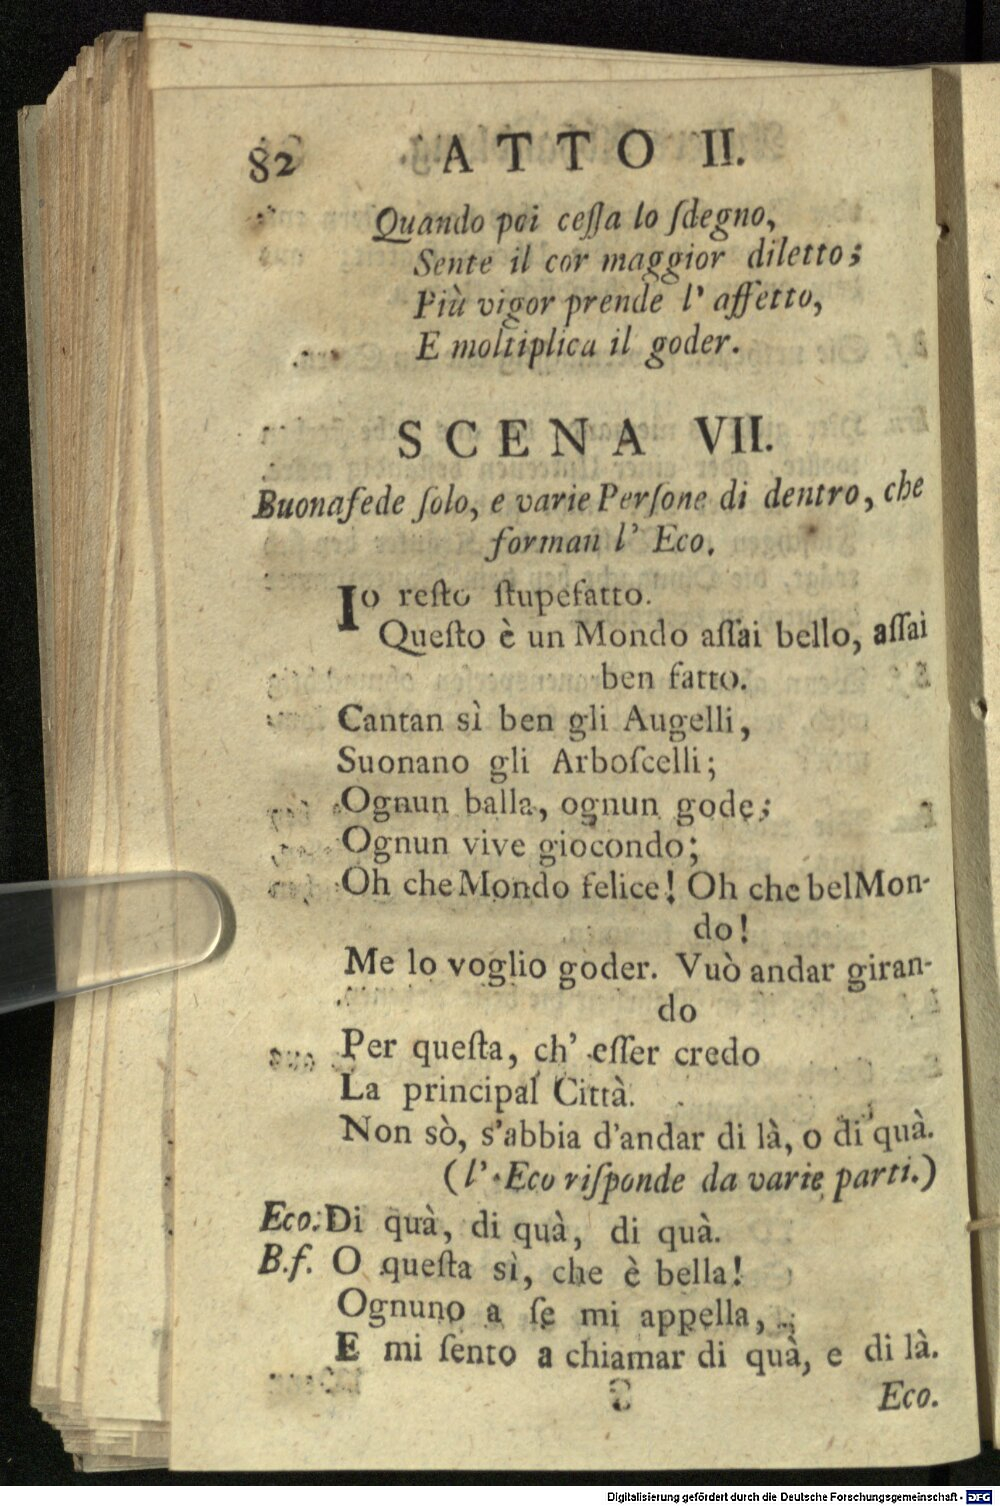 82 ATTO II.
Quando poi ceſſa lo ſdegno,
Sente il cor maggior diletto;
Più vigor prende l' affetto,
E moltiplica il goder.
SCENA VII.
Buonafede ſolo, e varie Perſone di dentro, che
forman l' Eco.
Io reſto ſtupefatto.
Queſto è un Mondo aſſai bello, aſſai
ben fatto.
Cantan sì ben gli Augelli,
Suonano gli Arboſcelli;
Ognun balla, ognun gode;
Ognun vive giocondo;
Oh che Mondo felice! Oh che bel Mon-
do!
Me lo voglio goder. Vuò andar giran-
do
Per queſta, ch' eſſer credo
La principal Città.
Non sò, s'abbia d'andar di là, o di quà.
(l' Eco riſponde da varie parti.)
Eco. Di quà, di quà, di quà.
B.f. O queſta sì, che è bella!
Ognuno a ſe mi appella,
E mi ſento a chiamar di quà, e di là.
Eco.
Digitalisierung gefördert durch die Deutsche Forschungsgemeinschaft - DFG